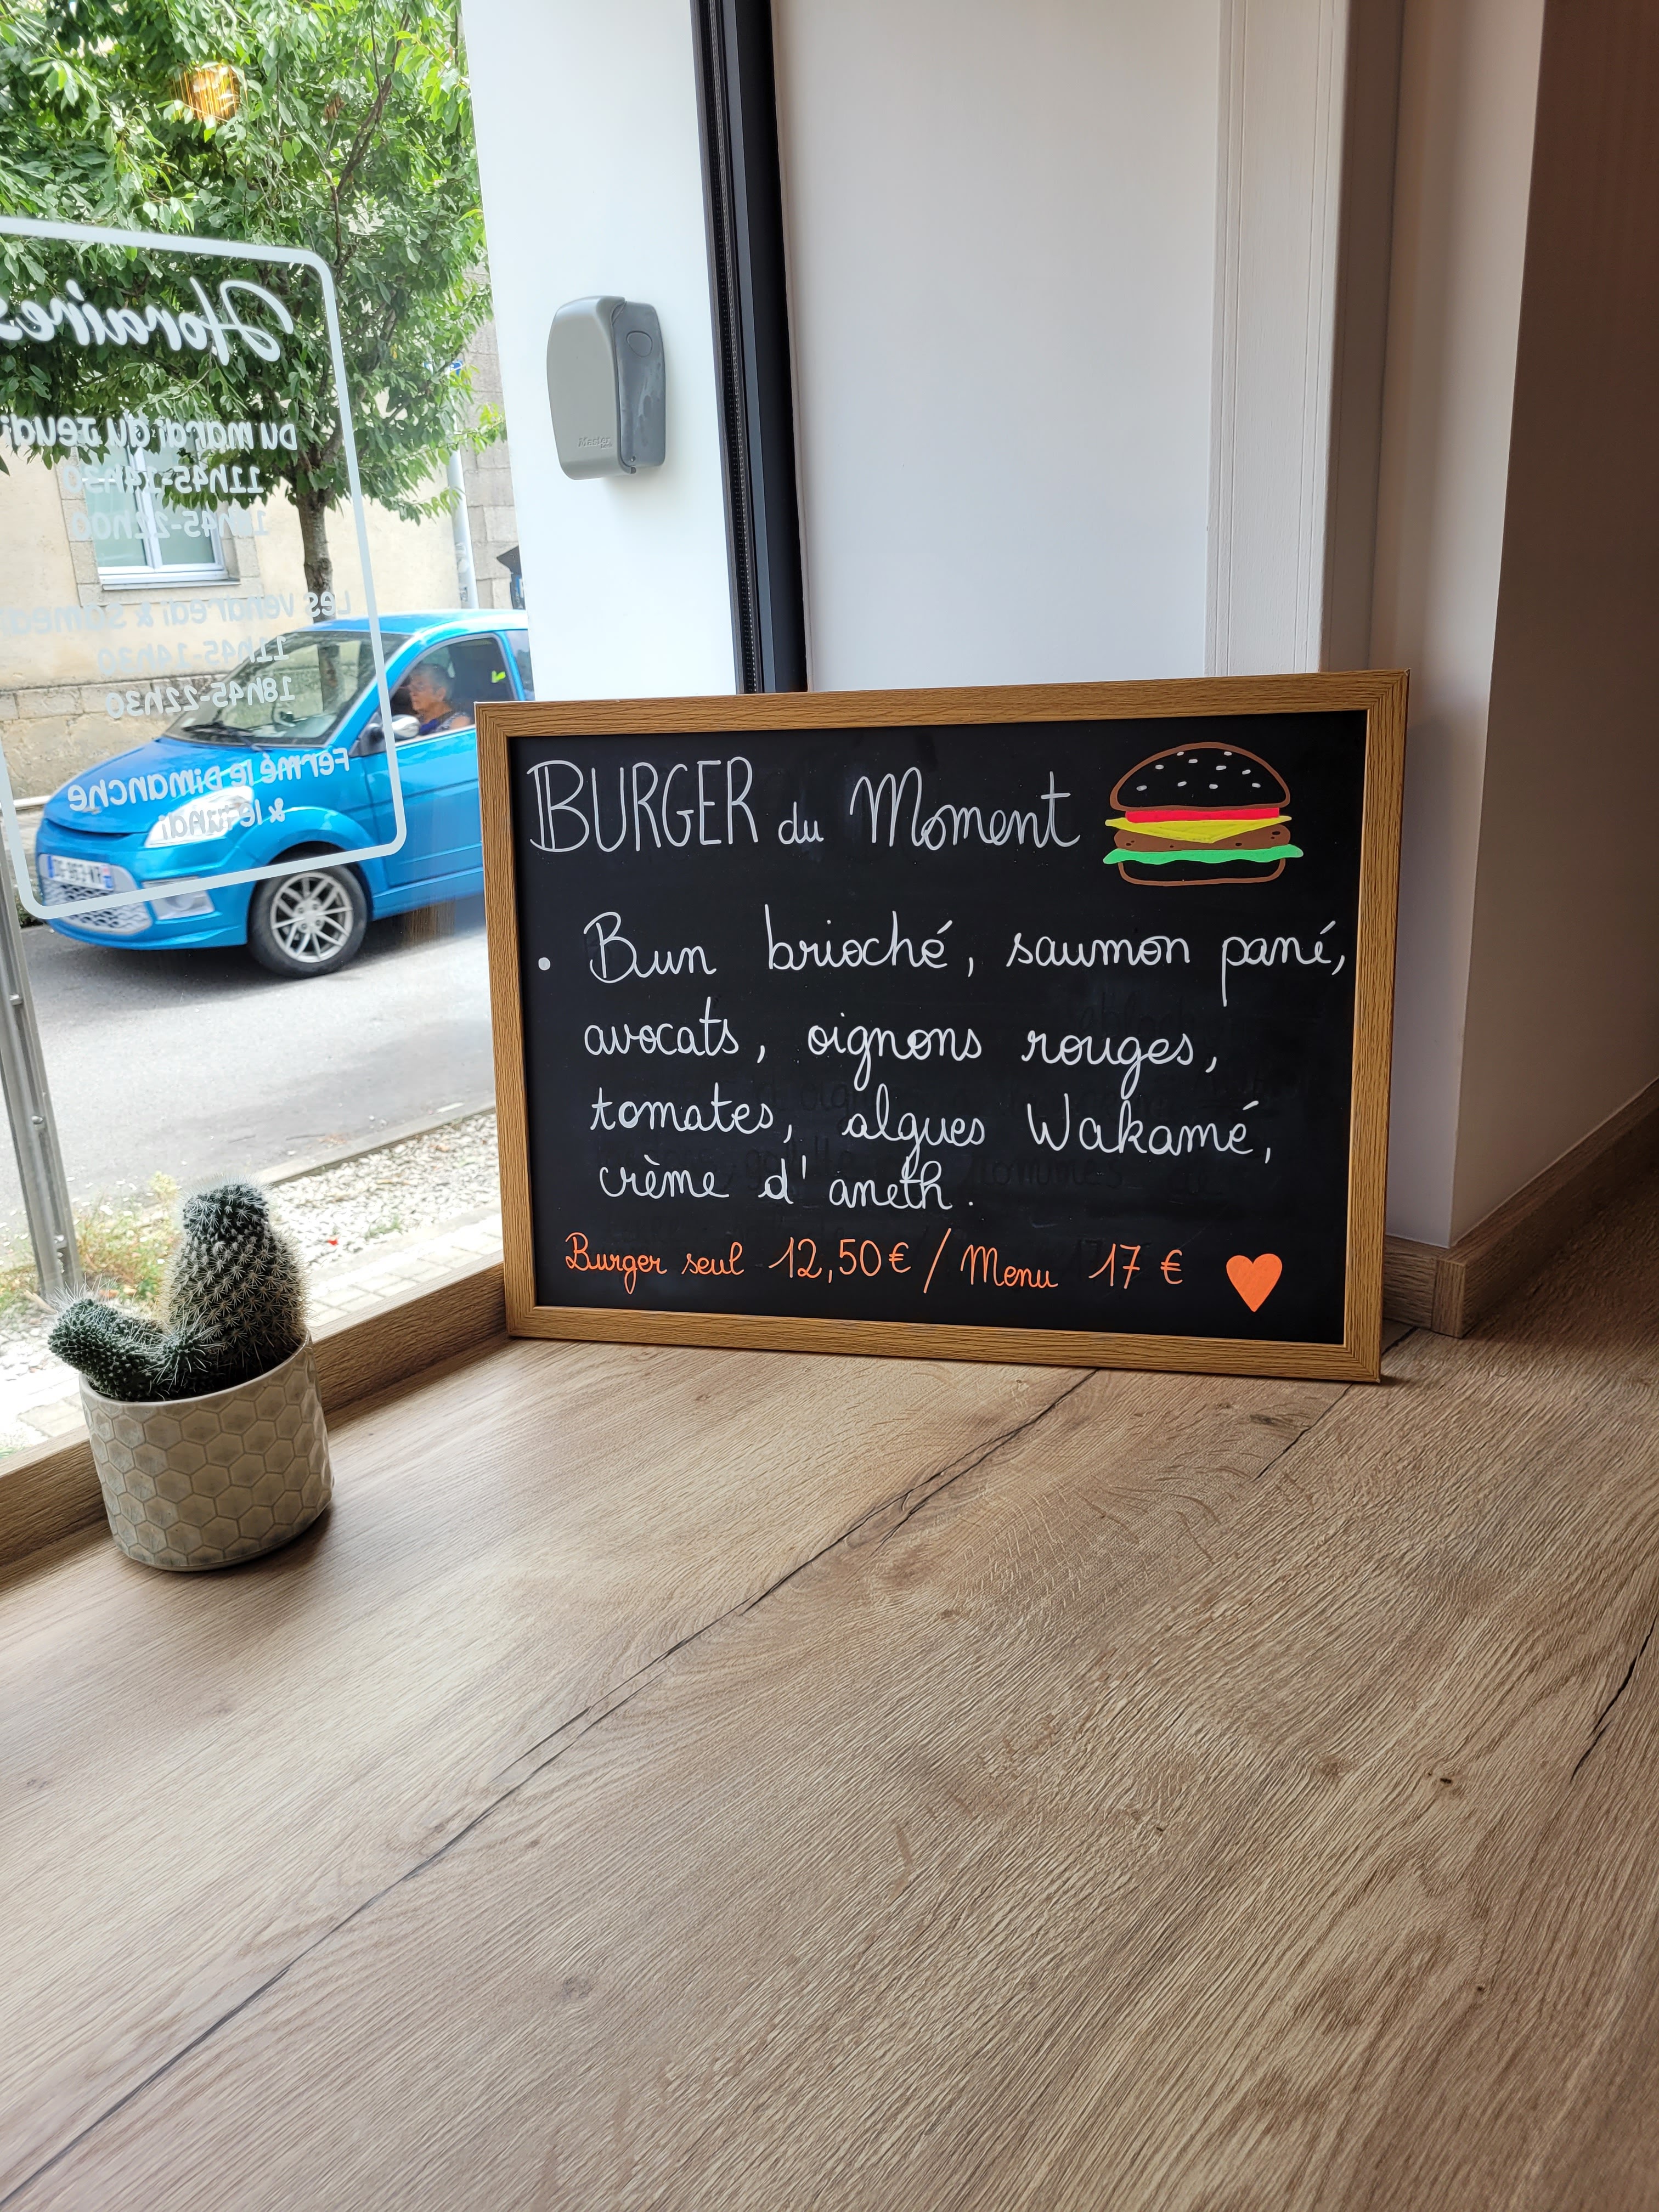 Horaires
Du mardi au Jeudi
11h45-14h30
18h45-22h00
Les vendredi & samedi
11h45-14h30
18h45-22h30
Fermé le Dimanche
& le lundi
Master
BURGER du Moment
• Bun brioché, saumon pané,
avocats, oignons rouges,
tomates, algues Wakamé,
crème d'aneth.
Burger seul 12,50€ / Menu 17 €